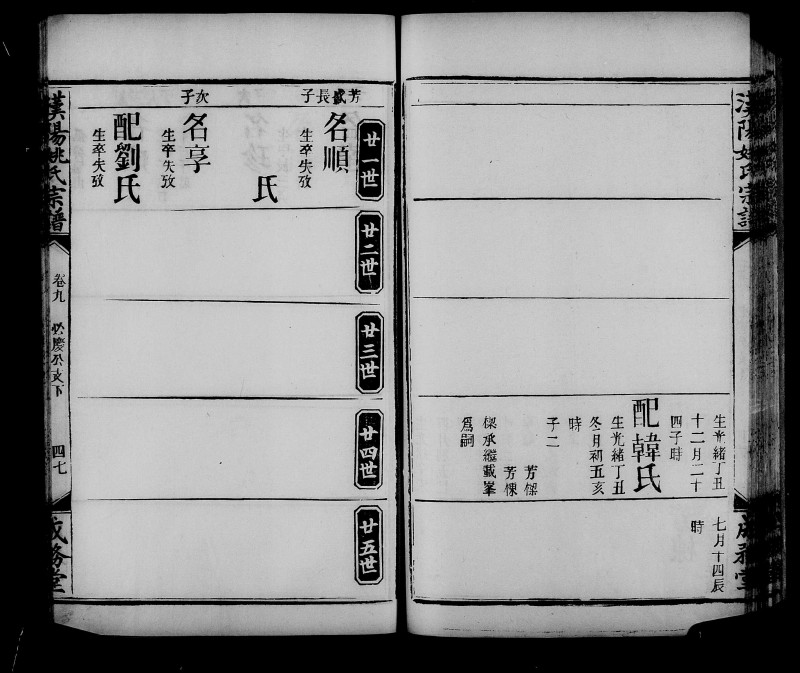 漢陽姚氏宗譜
成務堂
生光緒丁丑
十二月二十
四子時
配韓氏
生光緒丁丑
冬月初五亥
時
子二
芳樑
芳棟
樑承繼載峯
爲嗣
七月十四辰
時
廿一世
廿二世
廿三世
廿四世
廿五世
芳盛長子
名順
生卒失攷
氏
次子
名享
生卒失攷
配劉氏
生卒失攷
漢陽姚氏宗譜
卷九
慶公支下
四七
成務堂